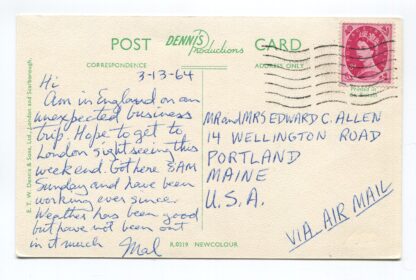 POST DENNIS Productions CARD
CORRESPONDENCE
ADDRESS ONLY
3-13-64
Hi
Am in England on an
unexpected business
trip. Hope to get to
London sightseeing this
weekend. Got here 8 AM
Sunday and have been
working ever since.
Weather has been good
but have not been out
in it much Mal
MR and MRS EDWARD C. ALLEN
14 WELLINGTON ROAD
PORTLAND
MAINE
U.S.A.
VIA AIR MAIL
E. T. W. Dennis & Sons, Ltd., London and Scarborough.
R.0119 NEWCOLOUR
Printed in